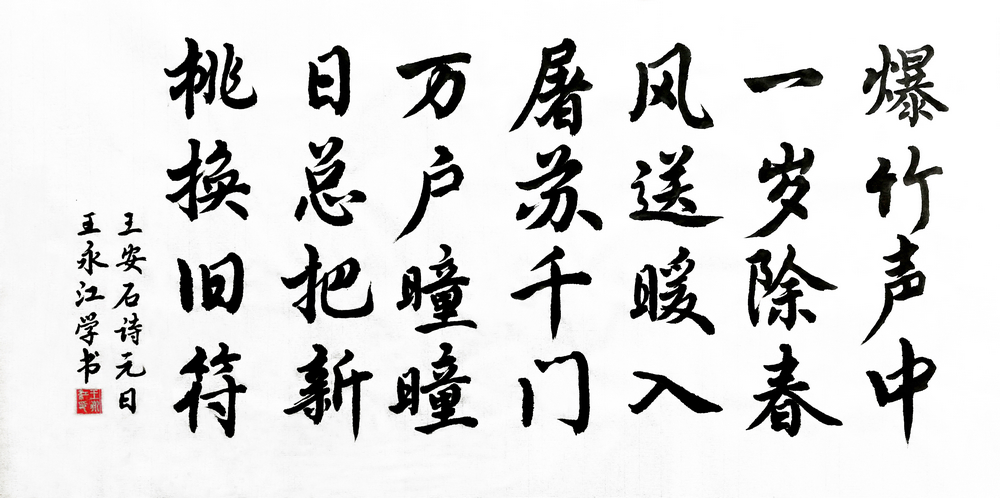 爆竹声中
一岁除春
风送暖入
屠苏千门
万户曈曈
日总把新
桃换旧符
王安石诗元日
王永江学书